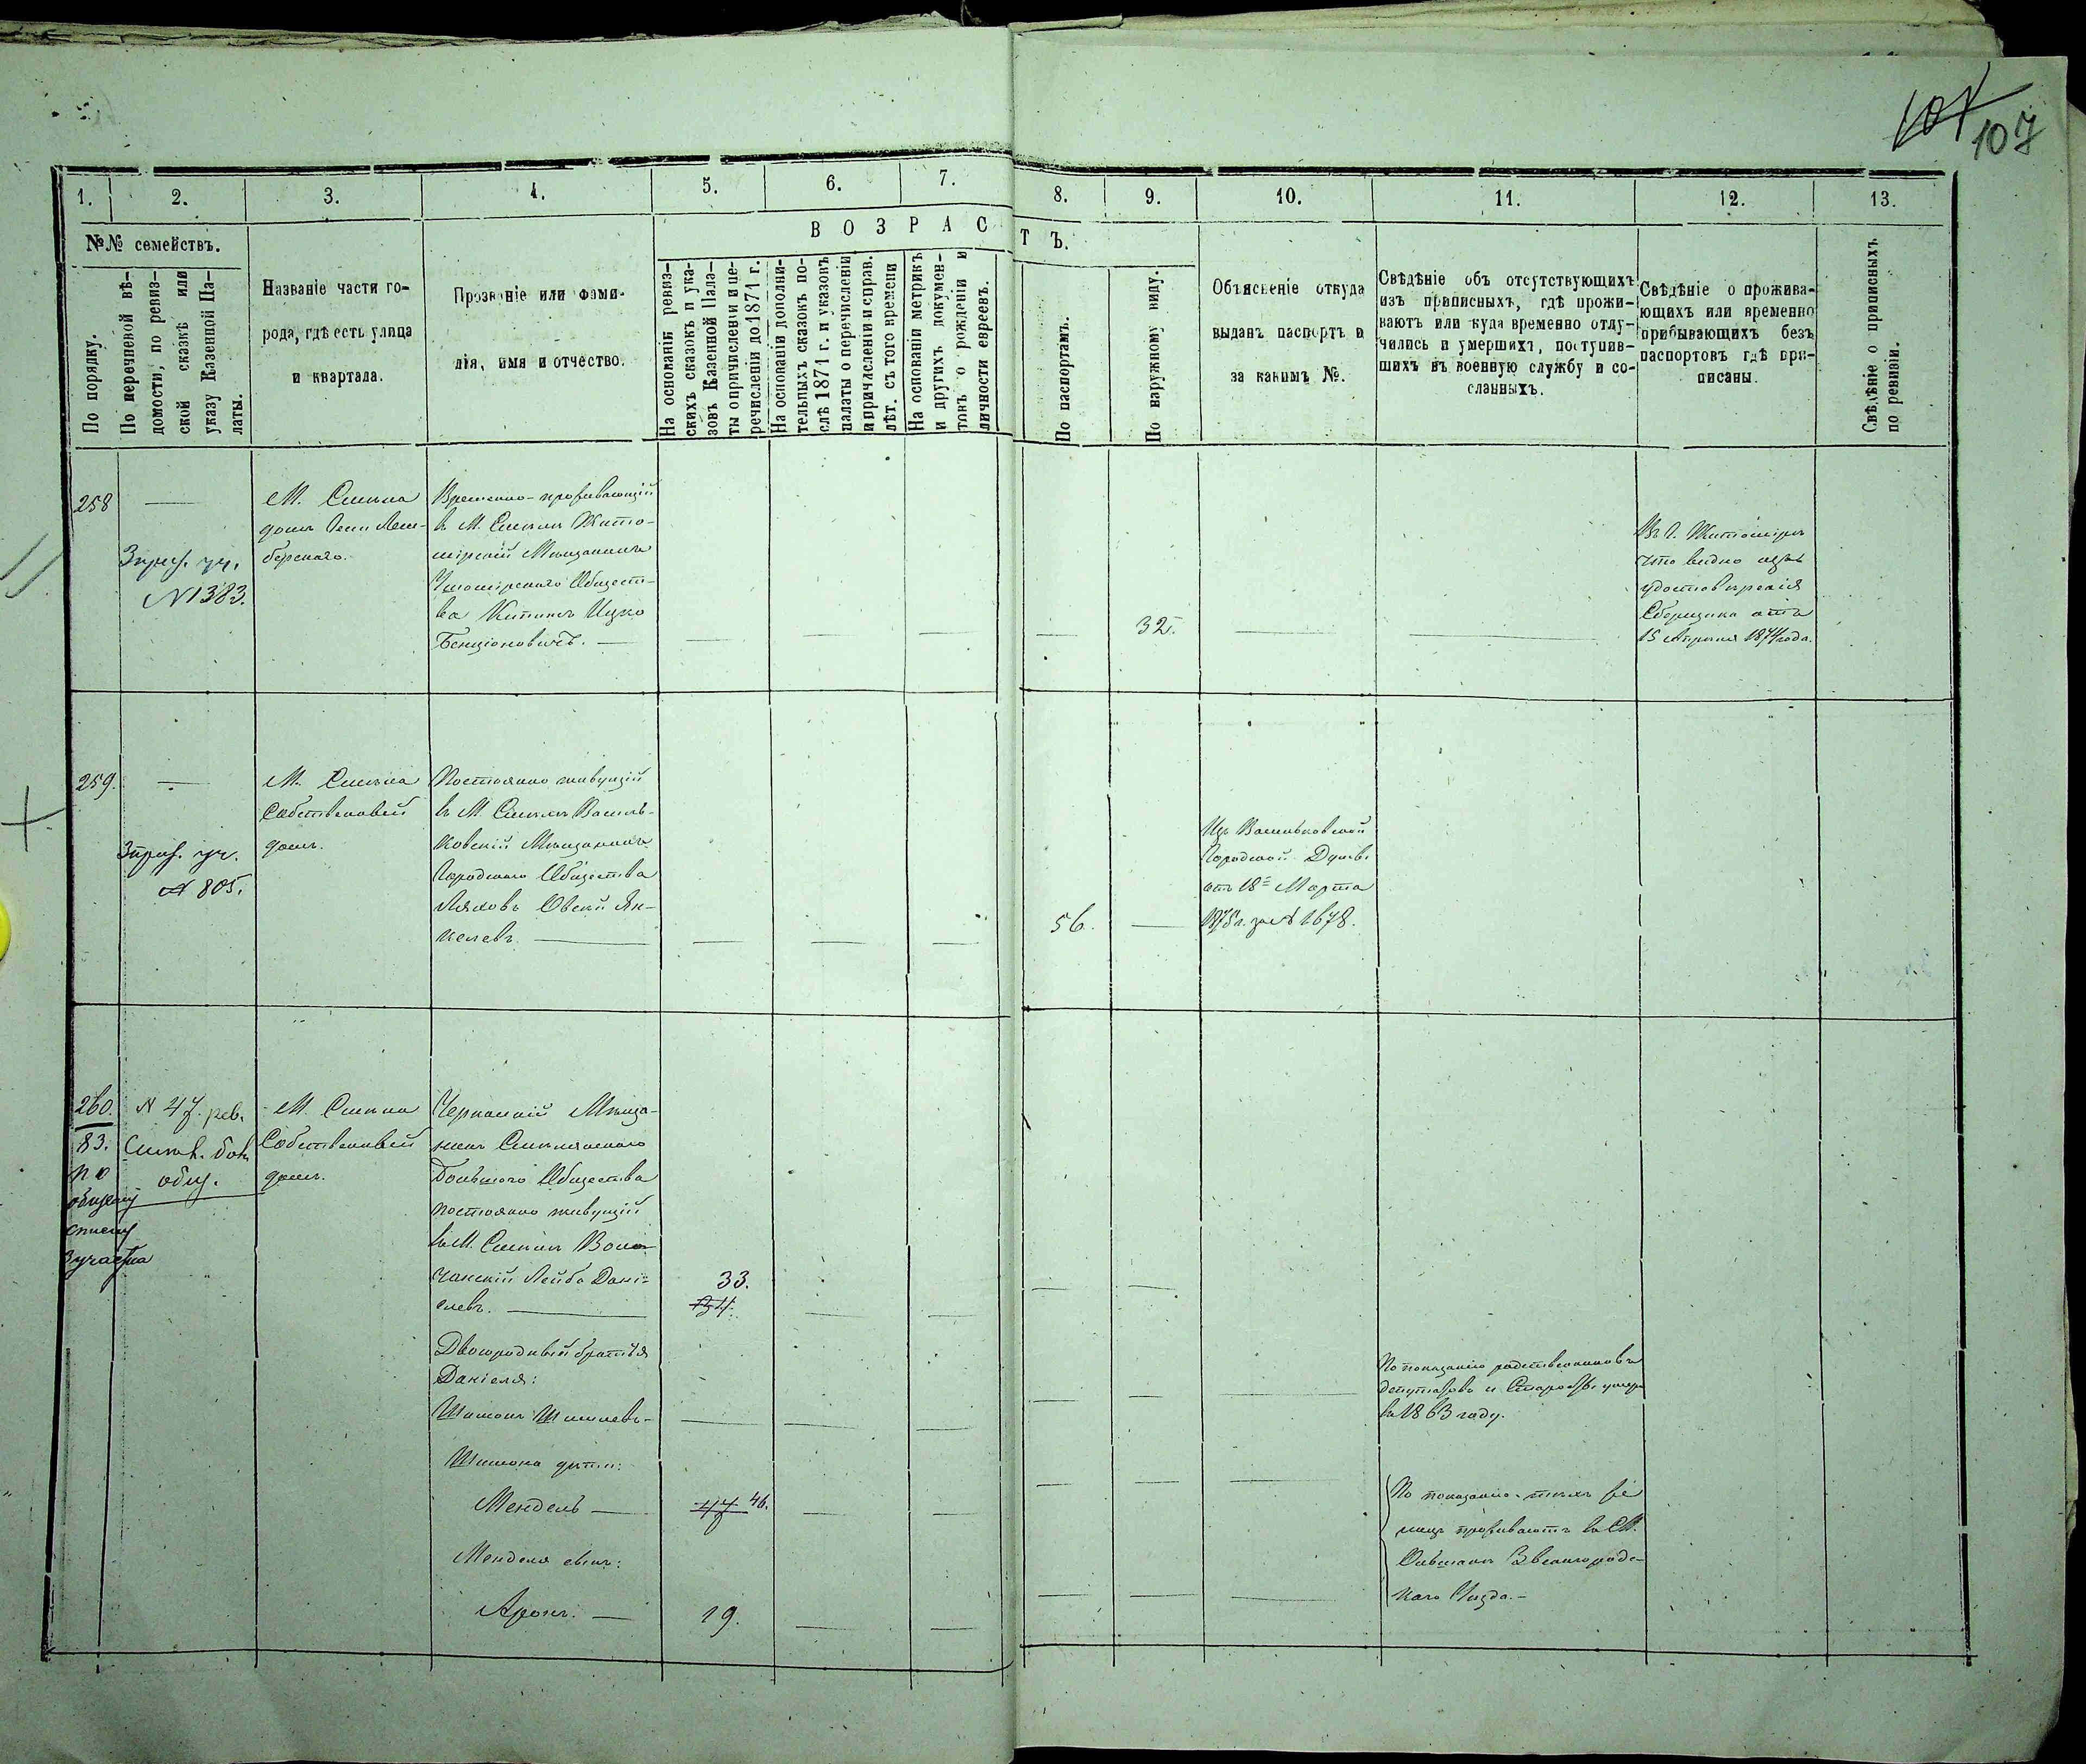 107
1. 2. 3. 4. 5. 6. 7. 8. 9. 10. 11. 12. 13.
№№ семействъ.
По порядку.
По перечневой вѣ-
домости, по ревиз-
ской сказкѣ или
указу Казенной Па-
латы.
Названіе части го-
рода, гдѣ есть улица
и квартала.
Прозваніе или фами-
лія, имя и отчество.
ВОЗРАСТЪ.
На основаніи ревиз-
скихъ сказокъ и ука-
зовъ Казенной Пала-
ты о причисленіи и пе-
речисленіи до 1871 г.
На основаніи дополни-
тельныхъ сказокъ по-
слѣ 1871 г. и указовъ
палаты о перечисленіи
и причисленіи и справ.
лѣт. съ того времени
На основаніи метрикъ
и другихъ докумен-
товъ о рожденіи и
личности евреевъ.
По паспортамъ.
По наружному виду.
Объясненіе откуда
выданъ паспортъ и
за какимъ №.
Свѣдѣніе объ отсутствующихъ
изъ приписныхъ, гдѣ прожи-
ваютъ или куда временно отлу-
чились и умершихъ, поступив-
шихъ въ военную службу и со-
сланныхъ.
Свѣдѣніе о прожива-
ющихъ или временно
прибывающихъ безъ
паспортовъ гдѣ при-
писаны.
Свѣдѣніе о приписныхъ
по ревизіи.
258
—
3 приз. уч.
№ 1383.
М. Смѣла
домъ
берскаго.
Временно-проживающій
въ М. Смѣлѣ Жито-
мірскій Мѣщанинъ
Общест-
ва Ицко
Бенціоновичъ. —
32.
Въ г. Житомірѣ
что видно изъ
удостовѣренія
Сборщика отъ
15 Апрѣля 1874 года.
259.
—
3 приз. уч.
№ 805.
М. Смѣла
Собственный
домъ.
Постоянно живущій
въ М. Смѣлѣ Василь-
ковскій Мѣщанинъ
Городского Общества
Ляховъ Овсій Ян-
келевъ. —
56.
Изъ Васильковской
Городской Думы
отъ 18 Марта
1875 г. за № 1678.
260.
83.
по
общему
списку
3 участка
№ 47. рев.
Смѣл. бол.
общ.
М. Смѣла
Собственный
домъ.
Черкаскій Мѣща-
нинъ Смѣлянскаго
Большого Общества
постоянно живущій
въ М. Смѣлѣ Воло-
чанскій Лейба Дані-
елевъ. —
33.
34.
Двоюродный братья
Даніеля:
Шимонъ —
По показанію родственниковъ
депутатовъ и Старосты умеръ
въ 1863 году.
Шимона дѣти:
Мендель —
47 46.
Менделя сынъ:
Аронъ. —
19.
По показанію тѣхъ же
лицъ проживаютъ въ М.
Ольшанѣ Звенигородс-
каго Уѣзда. —